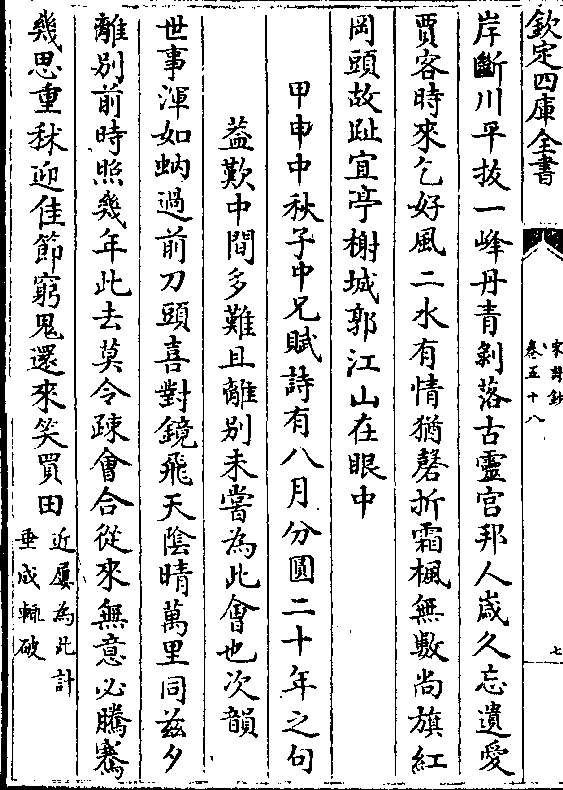 欽定四庫全書
宋詩鈔
卷五十八
七
岸斷川平拔一峰丹青剝落古靈宫邦人歲久忘遺愛
賈客時來乞好風二水有情猶磬折霜楓無數尚旗紅
岡頭故趾宜亭榭城郭江山在眼中
甲申中秋子中兄賦詩有八月分圓二十年之句
葢歎中間多難且離别未嘗為此㑹也次韻
世事渾如蚋過前刀頭喜對鏡飛天陰晴萬里同兹夕
離别前時照幾年此去莫令疎㑹合從來無意必騰騫
幾思重秫迎佳節窮鬼還來笑買田
近屢為此計
垂成輒破